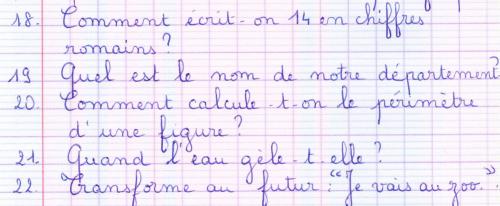 18. Comment écrit-on 14 en chiffres
romains?
19 Quel est le nom de notre département?
20. Comment calcule-t-on le périmètre
d'une figure?
21. Quand l'eau gèle-t-elle?
22. Transforme au futur: "Je vais au zoo."